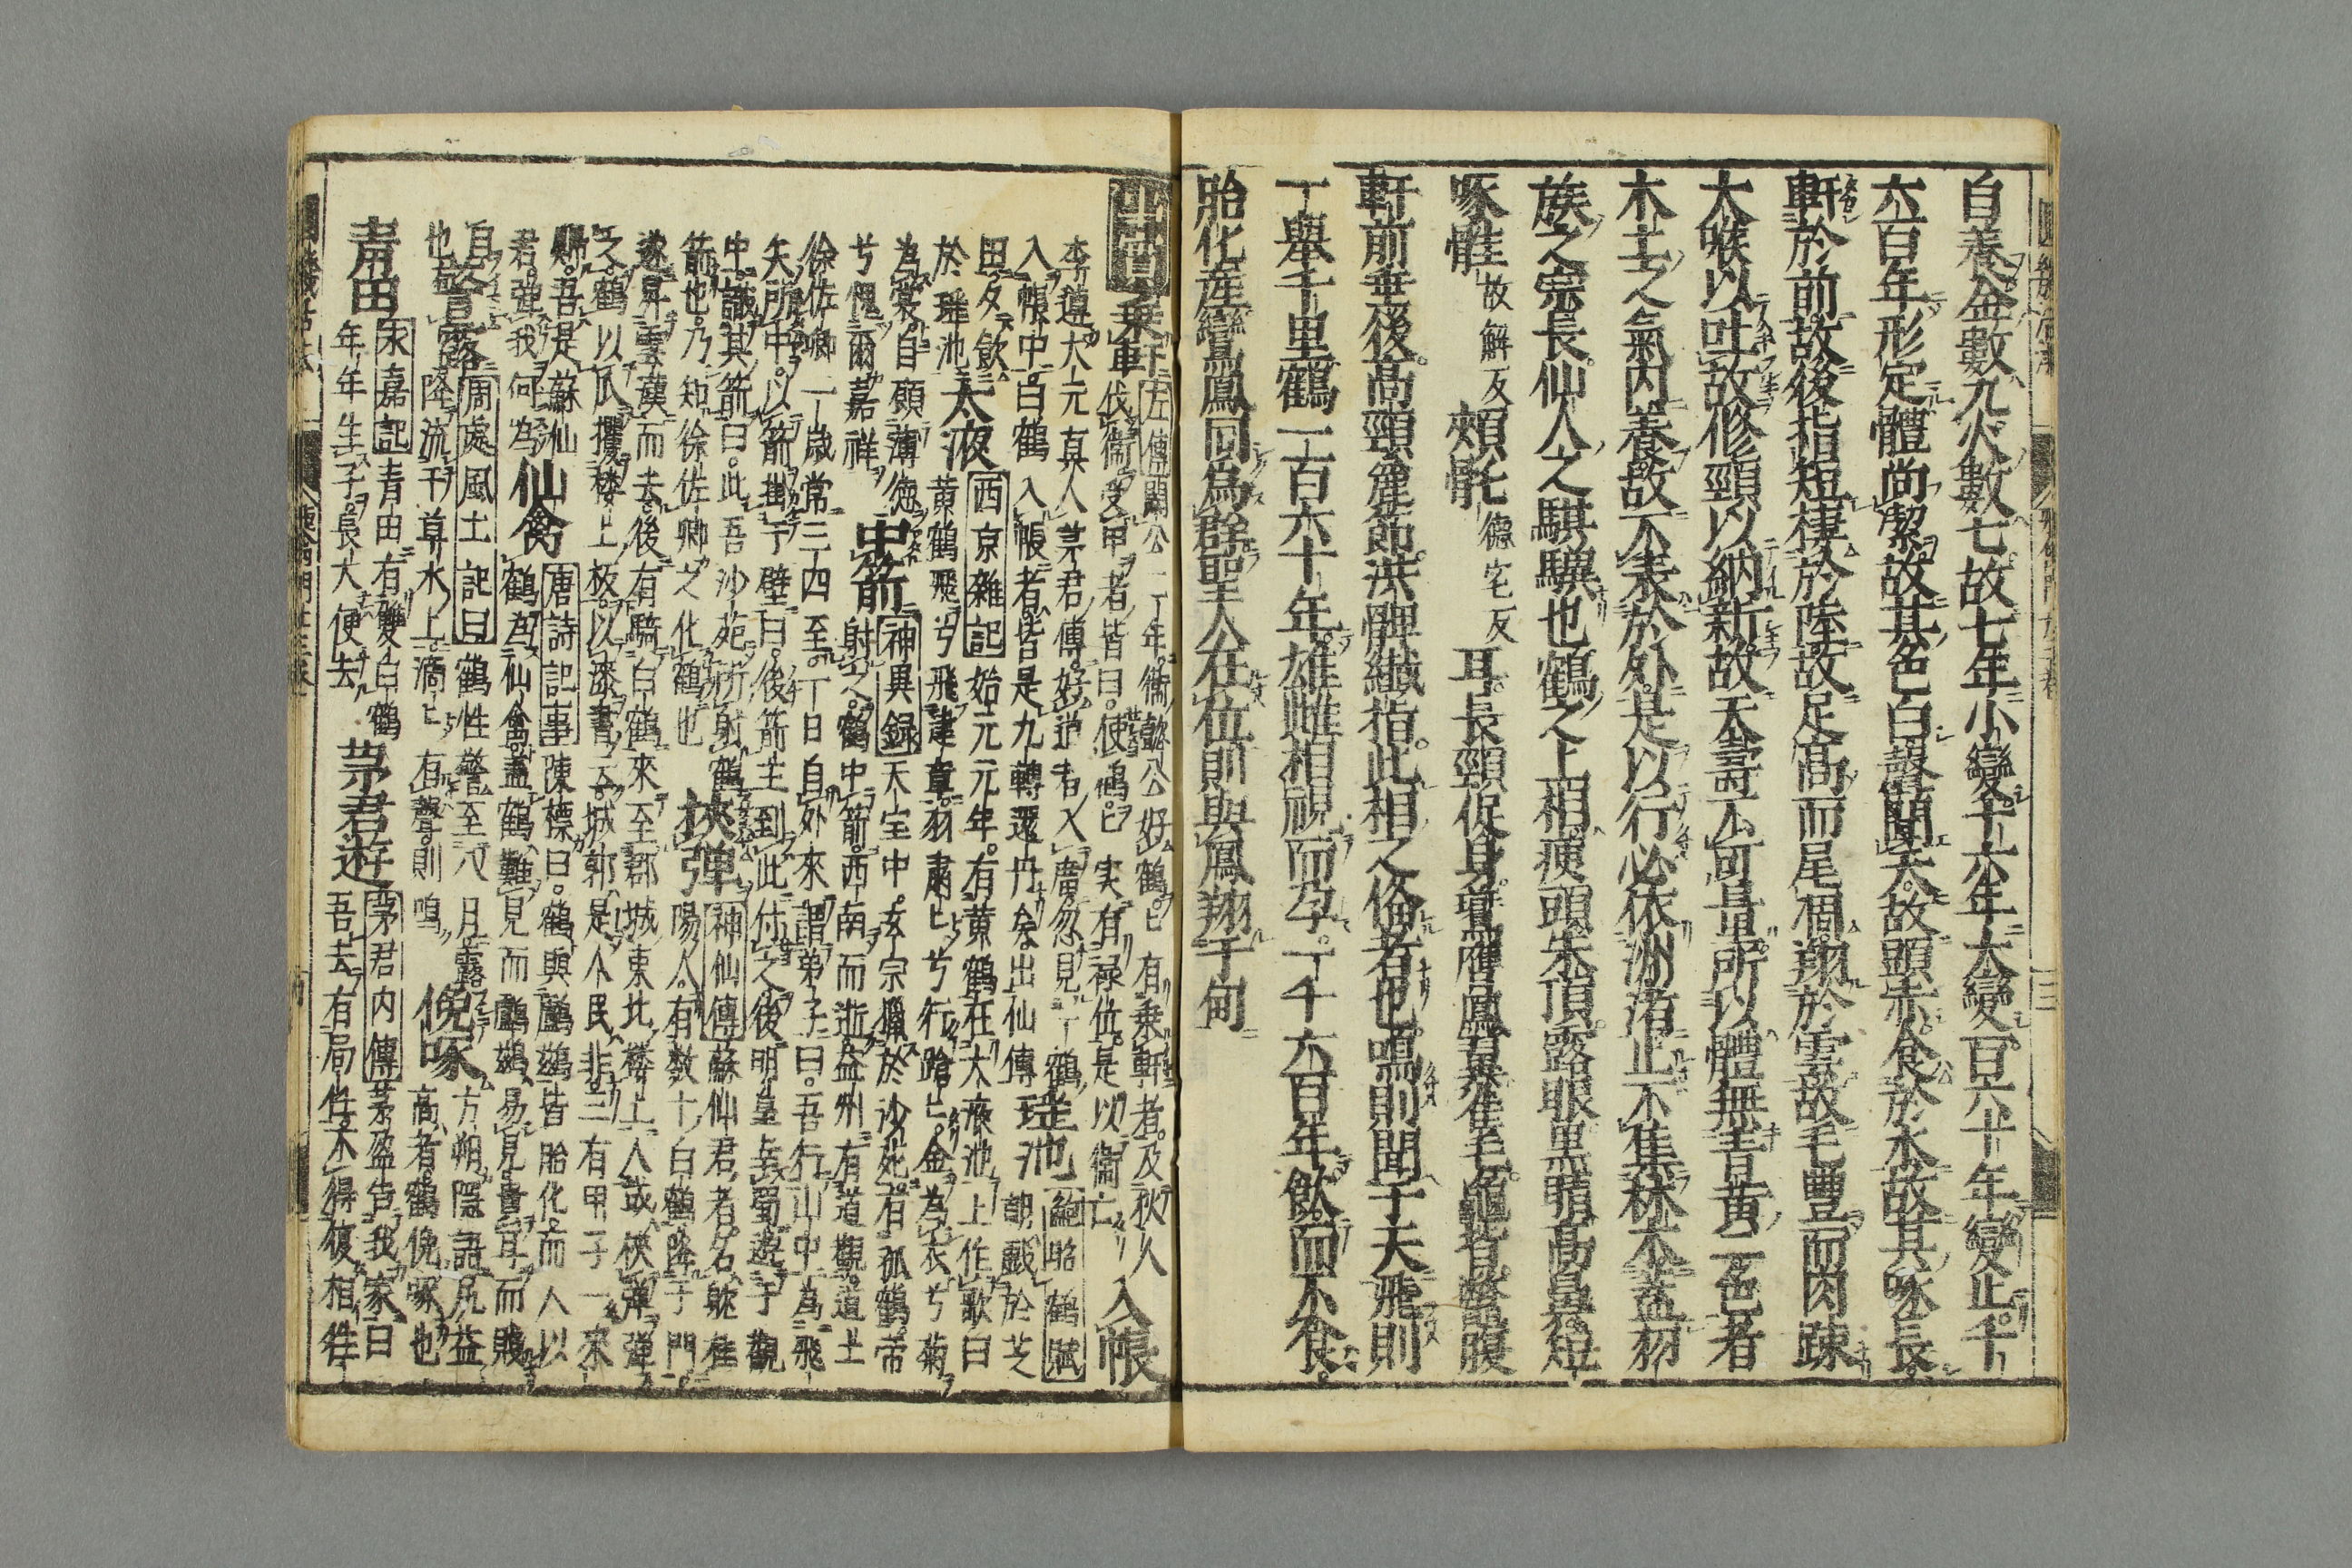 自養金數九火數七故七年小變十六年大變百六十年變止千
六百年形定體尚潔故其色白聲聞天故頭赤食於水故其喙長
軒於前故後指短棲於陸故足高而尾凋翔於雲故毛豊而肉疎
大喉以吐故修頸以納新故天壽不可量所以體無青黄二色者
木土之氣内養故不表於外是以行必依洲渚止不集林木蓋羽
族之宗長仙人之騏驥也鶴之上相瘦頭朱頂露眼黒睛高鼻短
喙䯊故解反頰䯌德宅反耳長頸促身鷰膺鳳翼雀毛龜背鼈腹
軒前垂後高頸麄節洪髀纎指此相之俻者也鳴則聞于天飛則
一擧千里鶴一百六十年雄雌相視而孕一千六百年飲而不食
胎化産鸞鳳同為群聖人在位則與鳳翔于甸
事實 乗軒 左傳閔公二年衛懿公好鶴ヒ有乗軒者及狄人
伐衛受甲者皆曰使鶴ヒ実有禄位是以衛亡 入帳
李遵大元真人茅君傳好道者入廣忽見一鶴 瑤池 鮑昭鶴賦
入帳中白鶴入帳者皆是九轉還丹矣出仙傳 朝戯於芝
田夕飲於瑤池 太液 西京雜記 始元元年有黄鶴在大液池上作歌曰
黄鶴飛兮飛建章羽肅ヒ兮行蹌ヒ金為衣兮菊
為裳自顧薄德兮愧爾嘉祥 中箭 神異録 天宝中玄宗獵於沙苑有孤鶴帝
射之鶴中箭西南而逝益州有道觀道士
徐佐卿一歳常三四至一日自外來謂弟子曰吾行山中為飛
矢所中以箭掛于壁曰後箭主到此付之後明皇幸蜀遊于觀
中識其箭曰此吾沙苑所射鶴
箭也乃知徐佐卿之化鶴也 挾彈 神仙傳 蘇仙君者名耽桂
陽人有数十白鶴降于門
遂昇雲漢而去後有騎白鶴來至郡城東北樓上人或挾彈彈
之鶴以爪攫樓上板以漆書云城郭是人民非三百甲子一來
歸吾是蘇仙君彈我何為 仙禽 唐詩記事 陳標曰鶴與鸕鷀皆胎化而人以
鶴為仙禽蓋鶴難見而鸕鷀易見貴耳而賤
目也 警露 周處風土記曰 鶴性警至八月露
降流于草木上滴ヒ有聲則鳴 俛啄 方朔隠語尻益
高者鶴俛啄也
青田 永嘉記 青田有雙白鶴
年年生子長大便去 茅君遊 茅君内傳 茅盈告我家曰
吾去有局任不得復相往